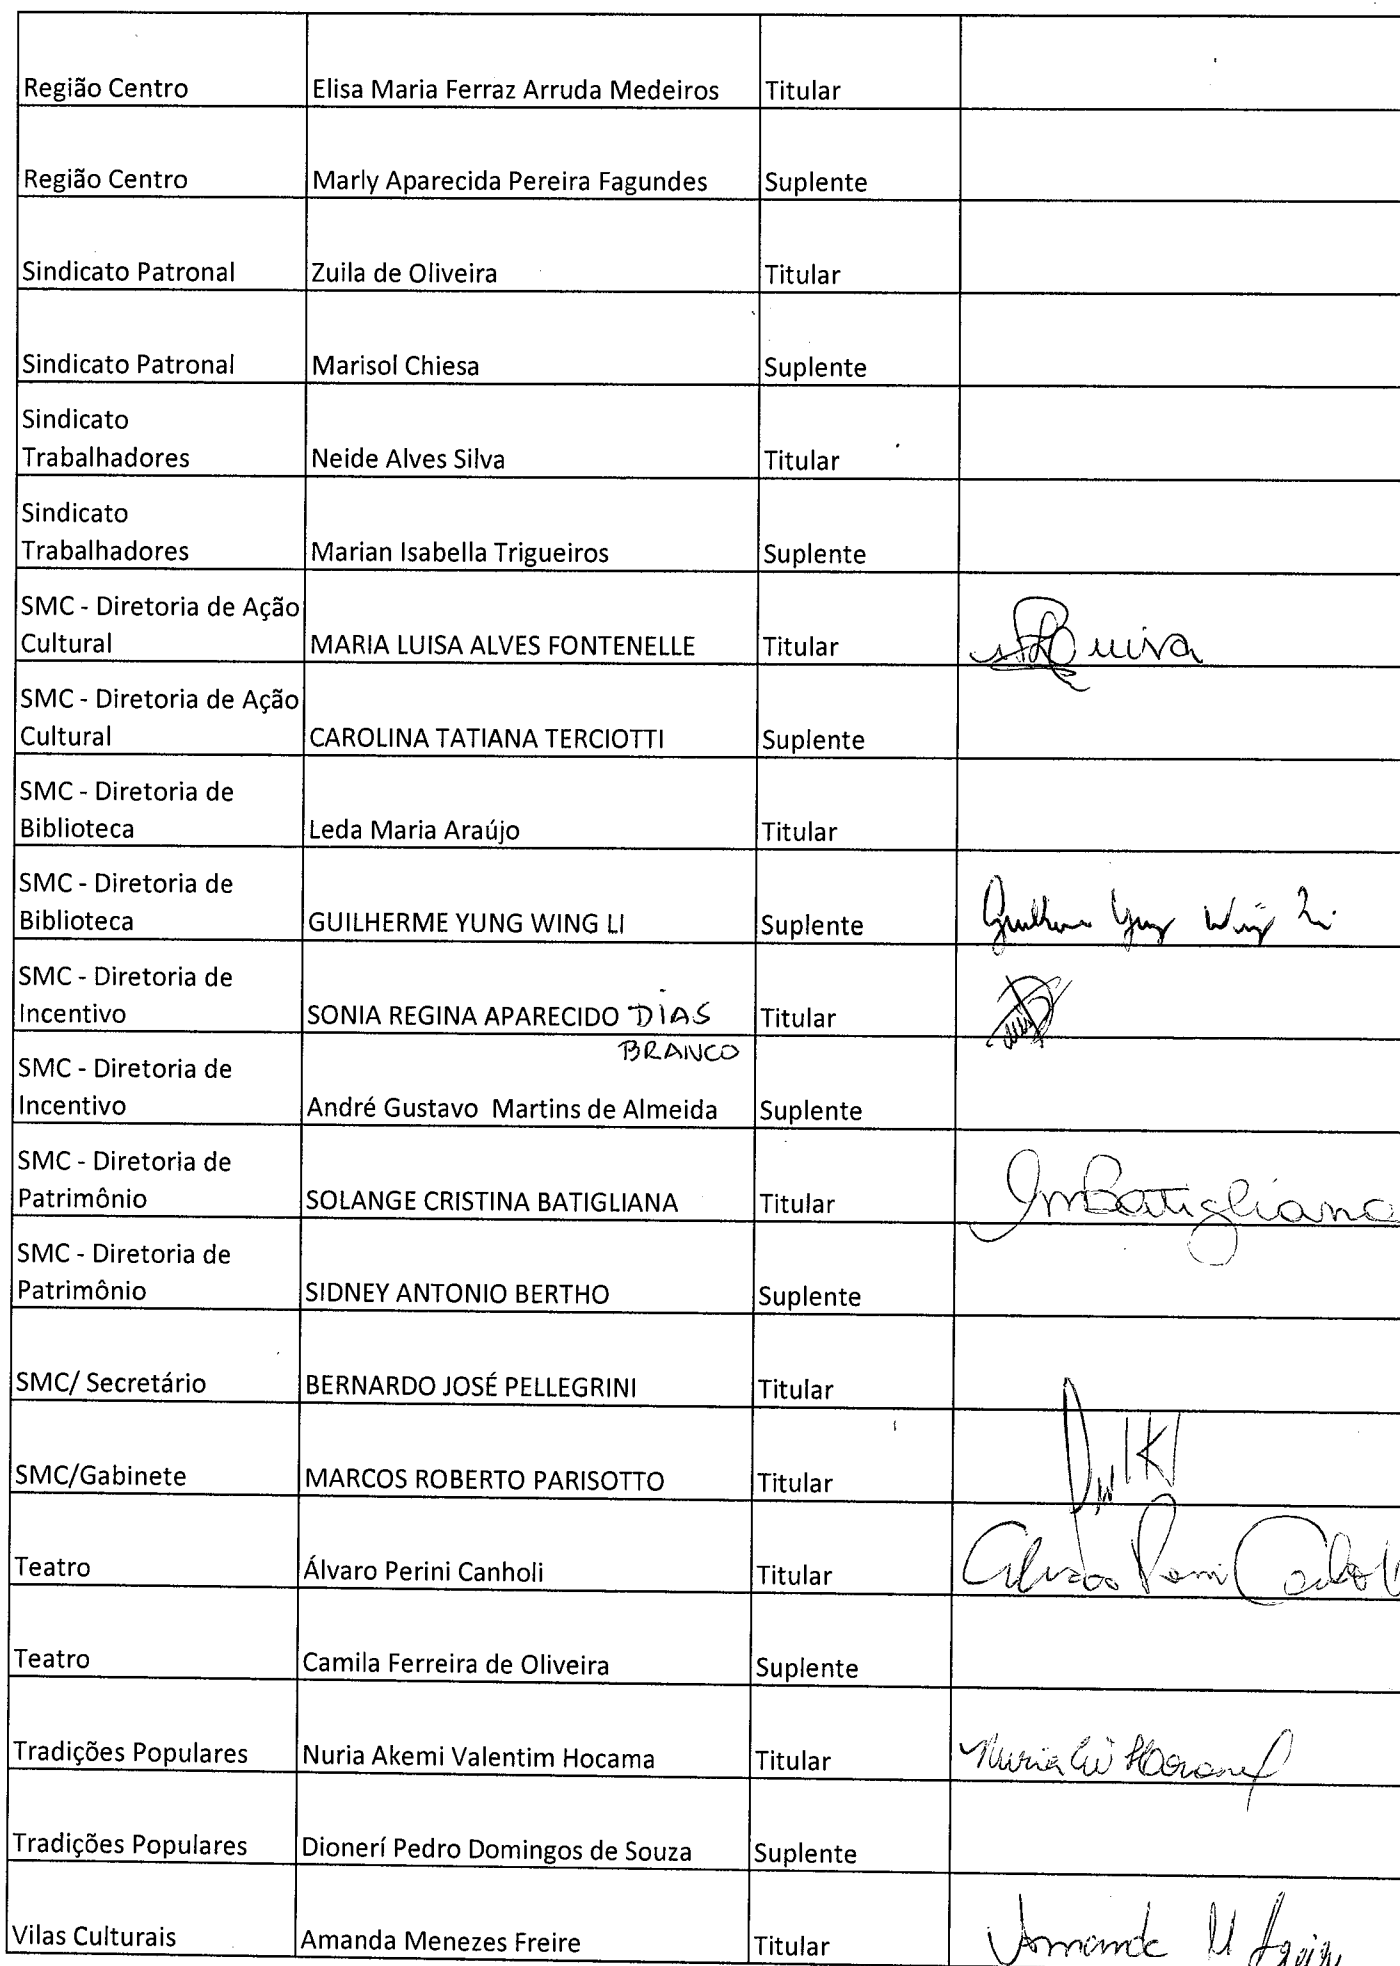 Região Centro Elisa Maria Ferraz Arruda Medeiros Titular
Região Centro Marly Aparecida Pereira Fagundes Suplente
Sindicato Patronal Zuila de Oliveira Titular
Sindicato Patronal Marisol Chiesa Suplente
Sindicato
Trabalhadores Neide Alves Silva Titular
Sindicato
Trabalhadores Marian Isabella Trigueiros Suplente
SMC - Diretoria de Ação
Cultural MARIA LUISA ALVES FONTENELLE Titular
SMC - Diretoria de Ação
Cultural CAROLINA TATIANA TERCIOTTI Suplente
SMC - Diretoria de
Biblioteca Leda Maria Araújo Titular
SMC - Diretoria de
Biblioteca GUILHERME YUNG WING LI Suplente Guilherme Yung Wing Li
SMC - Diretoria de
Incentivo SONIA REGINA APARECIDO DIAS Titular
BRANCO
SMC - Diretoria de
Incentivo André Gustavo Martins de Almeida Suplente
SMC - Diretoria de
Patrimônio SOLANGE CRISTINA BATIGLIANA Titular Batigliana
SMC - Diretoria de
Patrimônio SIDNEY ANTONIO BERTHO Suplente
SMC/ Secretário BERNARDO JOSÉ PELLEGRINI Titular
SMC/Gabinete MARCOS ROBERTO PARISOTTO Titular
Teatro Álvaro Perini Canholi Titular
Teatro Camila Ferreira de Oliveira Suplente
Tradições Populares Nuria Akemi Valentim Hocama Titular Nuria
Tradições Populares Dionerí Pedro Domingos de Souza Suplente
Vilas Culturais Amanda Menezes Freire Titular Amanda M Freire